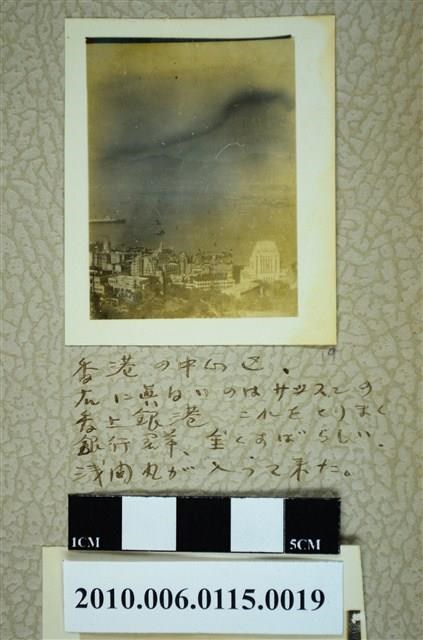 19
香港の中心区.
右に眞白いのはサッスンの
香上銀港 これをとりまく
銀行群、全くすばらしい.
浅間丸が入って来た。
1CM 5CM
2010.006.0115.0019